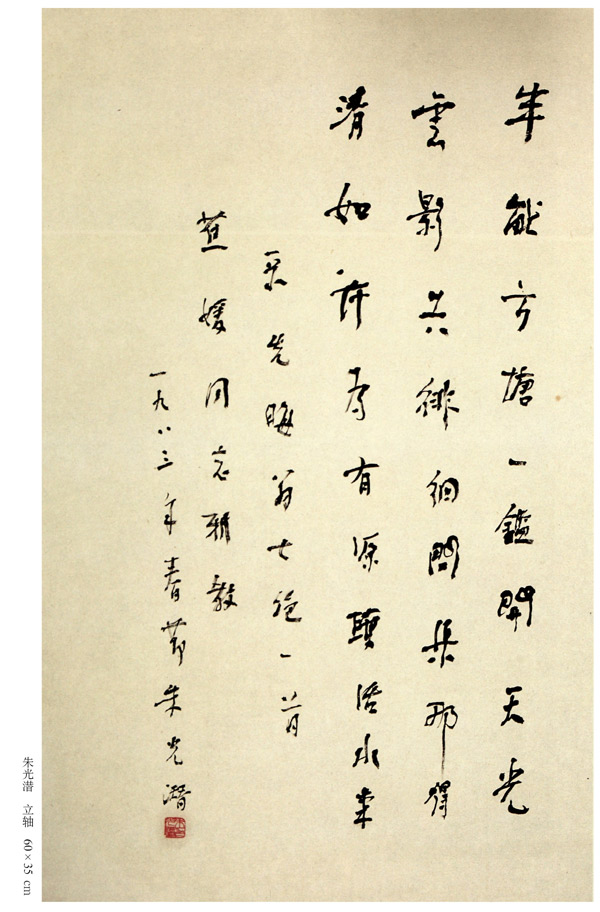 半畝方塘一鑑開天光
雲影共徘徊問渠那得
清如許为有源頭活水来
录先晦翁七絶一首
蕉媛同志雅教
一九八三年春節朱光潛
朱光潜 立轴 60×35 cm